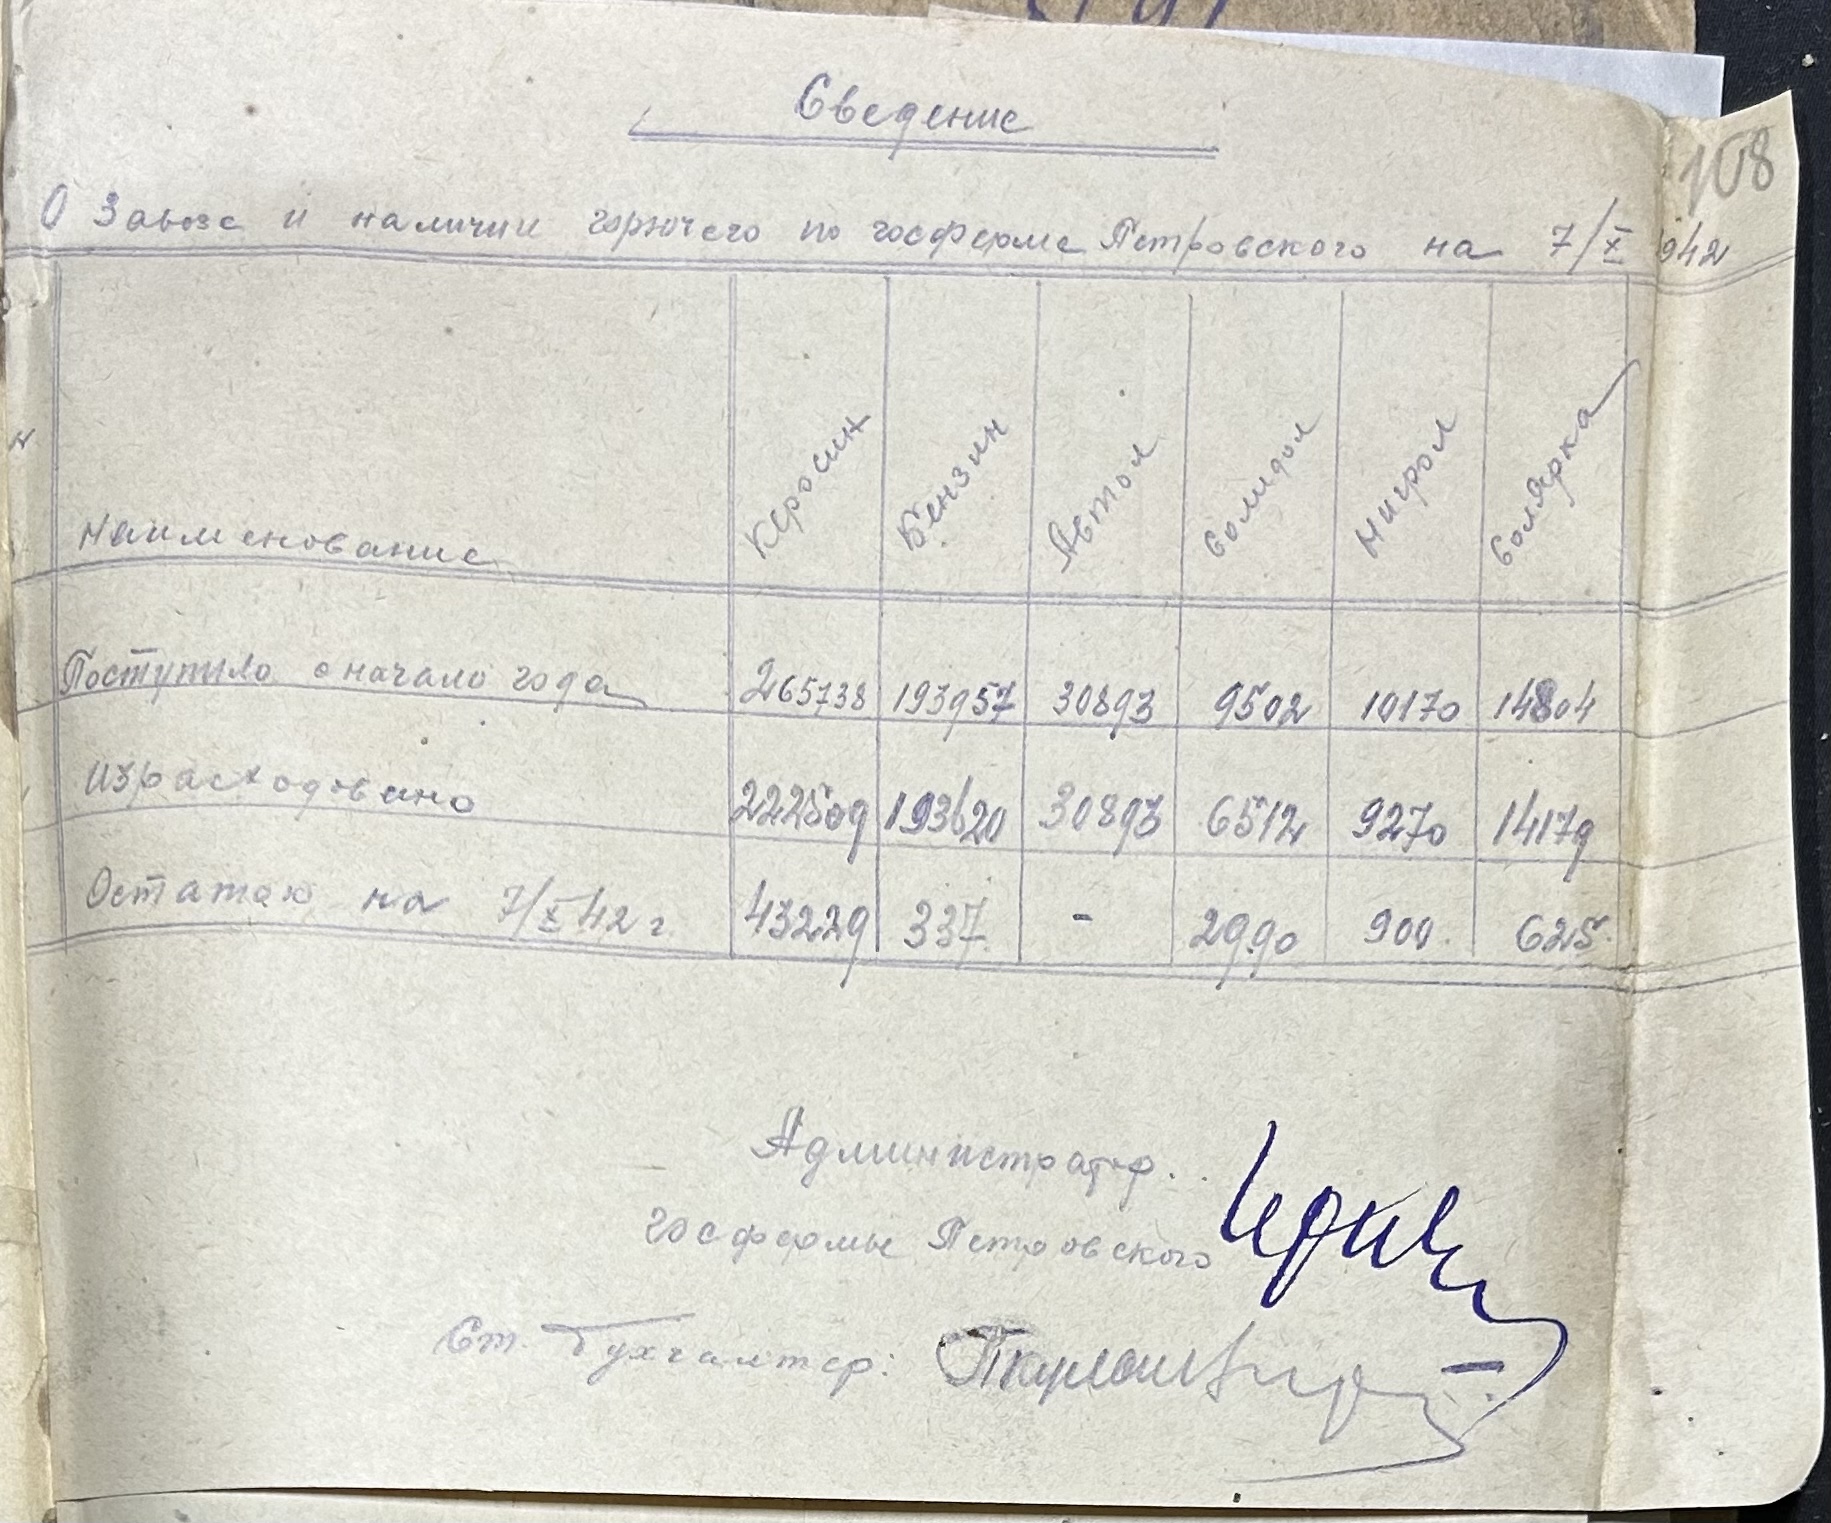 108
Сведение
О Завозе и наличии горючего по госферме Петровского на 7/X 1942
Наименование Керосин Бензин Автол Солидол Нигрол Солярка
Поступило с начало года 265738 193957 30893 9502 10170 14804
Израсходовано 222509 193620 30893 6512 9270 14179
Остатою на 7/X 42 г. 43229 337 - 2990 900 625
Администратор.
госфермы Петровского
Ст. Бухгалтер: